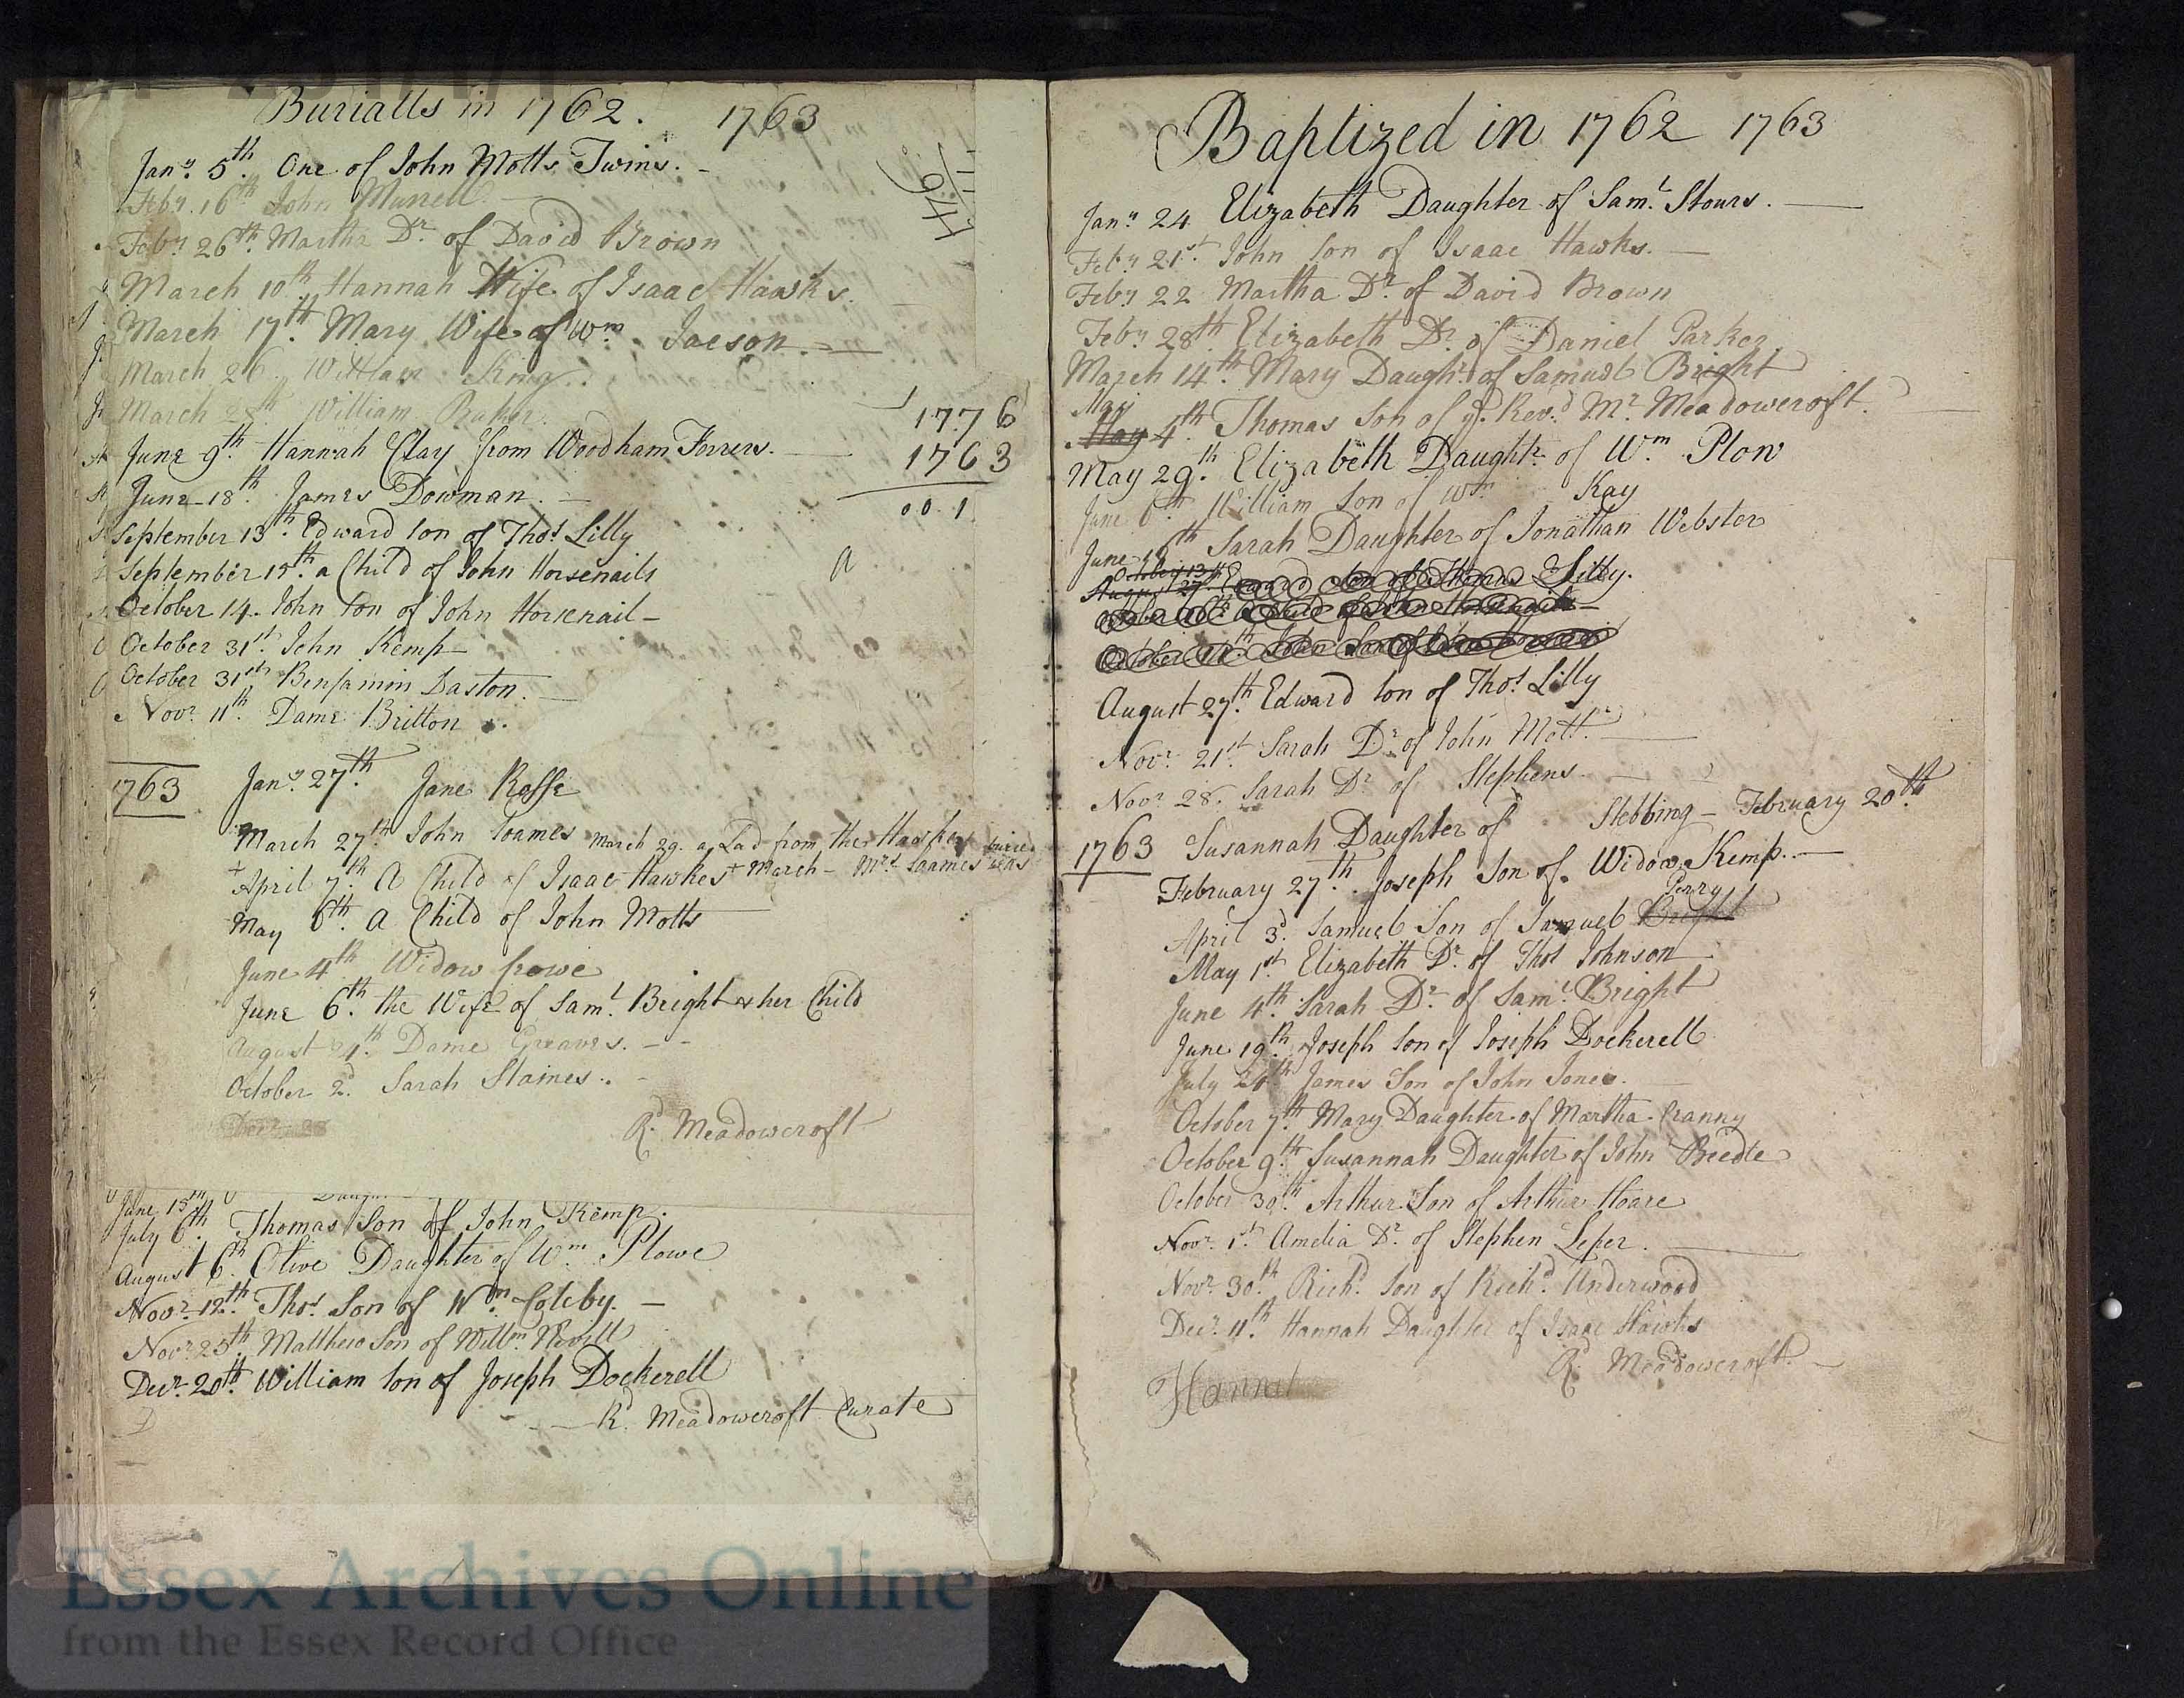 Burialls in 1762. 1763
Jany. 5th. One of John Motts Twins.
Feby. 16th John Murrell
Feby 26th. Martha Dr. of David Brown
March 10th Hannah Wife of Isaac Hawks.
March 17th. Mary Wife of Wm. Jacson.
March 26 William King
March 28th William Baker
June 9th. Hannah Clay from Woodham Ferrers.
June 18th. James Dowman.
September 13th. Edward son of Thos Lilly
September 15th. a Child of John Horsenails
October 14. John son of John Horsenail
October 31st. John Kemp
October 31st. Benjamin Daston.
Novr. 11th. Dame Britton
1776
1763
001
a
1763 Jany. 27th. Jane Rosse
March 27th John Soames March 29. a Lad from the buried
+ April 7th. A Child of Isaac Hawkes + March - Mrs. Soames was
May 6th. a Child of John Motts
June 4th Widow Crowe
June 6th. the Wife of Saml. Bright & her Child
August 21th. Dame Greaves.
October 2d. Sarah Staines.
Decr. 28
Rd. Meadowcroft
June 15th
July 6th. Thomas Son of John Kemp.
August 6th. Olive Daughter of Wm. Plowe
Novr. 12th. Thos. Son of Wm. Coleby.
Novr 25th. Matthew Son of Willm. Nevill
Decr. 20th. William son of Joseph Dockerell
Rd. Meadowcroft Curate
Baptized in 1762 1763
Jany. 24 Elizabeth Daughter of Saml. Stours.
Feby. 21st. John Son of Isaac Hawks.
Feby 22 Martha Dr. of David Brown
Feby. 28th Elizabeth Dr. of Daniel Parker
March 14th. Mary Daughr. of Samuel Bright
May
May 4th. Thomas Son of ye. Revd. Mr. Meadowcroft.
May 29th. Elizabeth Daughtr. of Wm. Plow
June 6th William Son of Wm Kay
June 16th Sarah Daughter of Jonathan Webster
October 13th
August 27 Edward Son of Thomas Lilly.
October John Son of
August 27th. Edward son of Thos. Lilly
Novr. 21st Sarah Dr. of John Mott.
Novr 28. Sarah Dr. of Stephens
1763 Susannah Daughter of Stebbing - February 20th
February 27th. Joseph Son of Widow Kemp.
Perry
April 3d. Samuel Son of Samuel Bright
May 1st. Elizabeth Dr. of Thos Johnson
June 4th. Sarah Dr. of Saml. Bright
June 19th. Joseph Son of Joseph Dockerell
July 24th James Son of John Jones.
October 7th. Mary Daughter of Martha Cranny
October 9th. Susannah Daughter of John Beedle
October 30th. Arthur Son of Arthur Hoare
Novr. 1st. Amelia Dr. of Stephen Leper.
Novr. 30th. Richd. Son of Richd. Underwood
Decr. 11th. Hannah Daughter of Isaac Hawks
Rd. Meadowcroft.
Hannah
Essex Archives Online
from the Essex Record Office